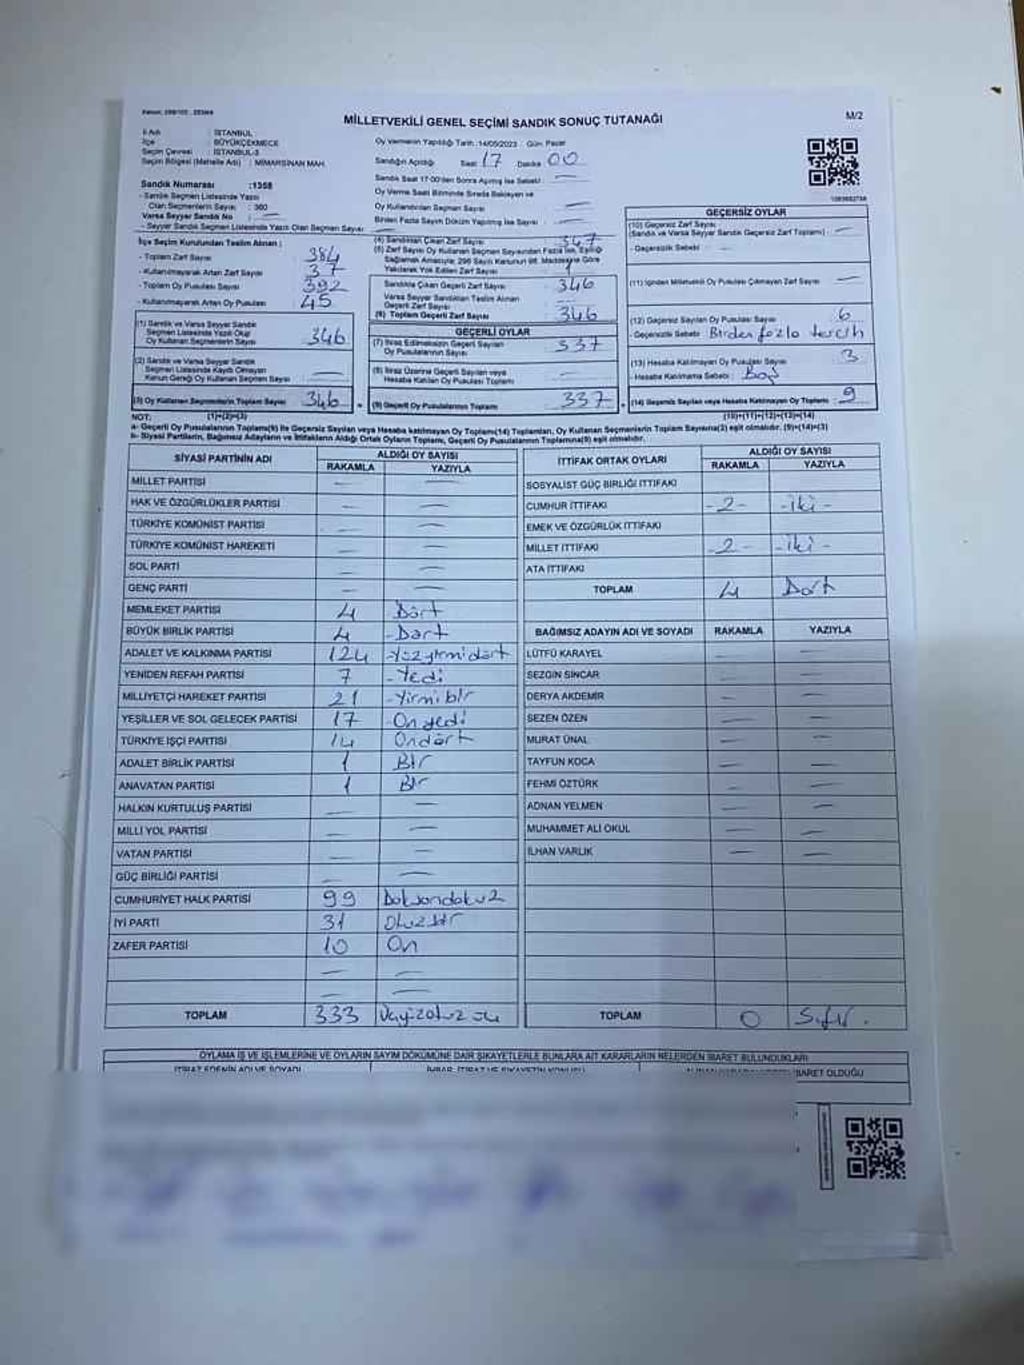 MİLLETVEKİLİ GENEL SEÇİMİ SANDIK SONUÇ TUTANAĞI
M/2
İl Adı : İSTANBUL
İlçe : BÜYÜKÇEKMECE
Seçim Çevresi : İSTANBUL-3
Seçim Bölgesi (Mahalle Adı) : MİMARSİNAN MAH.
Oy Vermenin Yapıldığı Tarih :14/05/2023 Gün: Pazar
Sandığın Açıldığı Saat 17 Dakika 00
Sandık Saat 17:00'den Sonra Açılmış İse Sebebi :
Oy Verme Saati Bitiminde Sırada Bekleyen ve
Oy Kullandırılan Seçmen Sayısı :
Birden Fazla Sayım Döküm Yapılmış İse Sayısı :
Sandık Numarası :1358
- Sandık Seçmen Listesinde Yazılı
Olan Seçmenlerin Sayısı : 380
Varsa Seyyar Sandık No :
- Seyyar Sandık Seçmen Listesinde Yazılı Olan Seçmen Sayısı :
İlçe Seçim Kurulundan Teslim Alınan :
- Toplam Zarf Sayısı 384
- Kullanılmayarak Artan Zarf Sayısı 37
- Toplam Oy Pusulası Sayısı 392
- Kullanılmayarak Artan Oy Pusulası 45
(1) Sandık ve Varsa Seyyar Sandık
Seçmen Listesinde Yazılı Olup
Oy Kullanan Seçmenlerin Sayısı 346
(2) Sandık ve Varsa Seyyar Sandık
Seçmen Listesinde Kaydı Olmayan
Kanun Gereği Oy Kullanan Seçmen Sayısı
(3) Oy Kullanan Seçmenlerin Toplam Sayısı 346
(1)+(2)=(3)
(4) Sandıktan Çıkan Zarf Sayısı 347
(5) Zarf Sayısı Oy Kullanan Seçmen Sayısından Fazla İse, Eşitliği
Sağlamak Amacıyla; 298 Sayılı Kanunun 98. Maddesine Göre
Yakılarak Yok Edilen Zarf Sayısı 1
Sandıkta Çıkan Geçerli Zarf Sayısı 346
Varsa Seyyar Sandıktan Teslim Alınan
Geçerli Zarf Sayısı
(6) Toplam Geçerli Zarf Sayısı 346
GEÇERLİ OYLAR
(7) İtiraz Edilmeksizin Geçerli Sayılan
Oy Pusulalarının Sayısı 337
(8) İtiraz Üzerine Geçerli Sayılan veya
Hesaba Katılan Oy Pusulası Toplamı
(9) Geçerli Oy Pusulalarının Toplamı 337
GEÇERSİZ OYLAR
(10) Geçersiz Zarf Sayısı
(Sandık ve Varsa Seyyar Sandık Geçersiz Zarf Toplamı) :
- Geçersizlik Sebebi :
(11) İçinden Milletvekili Oy Pusulası Çıkmayan Zarf Sayısı
(12) Geçersiz Sayılan Oy Pusulası Sayısı 6
- Geçersizlik Sebebi : Birden fazla tercih
(13) Hesaba Katılmayan Oy Pusulası Sayısı 3
- Hesaba Katılmama Sebebi : Boş
(14) Geçersiz Sayılan veya Hesaba Katılmayan Oy Toplamı : 9
(10)+(11)+(12)+(13)=(14)
NOT:
a- Geçerli Oy Pusulalarının Toplamı(9) ile Geçersiz Sayılan veya Hesaba katılmayan Oy Toplamı(14) Toplamları, Oy Kullanan Seçmenlerin Toplam Sayısına(3) eşit olmalıdır. (9)+(14)=(3)
b- Siyasi Partilerin, Bağımsız Adayların ve İttifakların Aldığı Ortak Oyların Toplamı, Geçerli Oy Pusulalarının Toplamına(9) eşit olmalıdır.
SİYASİ PARTİNİN ADI ALDIĞI OY SAYISI
RAKAMLA YAZIYLA
MİLLET PARTİSİ
HAK VE ÖZGÜRLÜKLER PARTİSİ
TÜRKİYE KOMÜNİST PARTİSİ
TÜRKİYE KOMÜNİST HAREKETİ
SOL PARTİ
GENÇ PARTİ
MEMLEKET PARTİSİ 4 Dört
BÜYÜK BİRLİK PARTİSİ 4 -Dört
ADALET VE KALKINMA PARTİSİ 124 -Yüzyirmidört
YENİDEN REFAH PARTİSİ 7 -Yedi
MİLLİYETÇİ HAREKET PARTİSİ 21 -Yirmibir
YEŞİLLER VE SOL GELECEK PARTİSİ 17 -Onyedi
TÜRKİYE İŞÇİ PARTİSİ 14 Ondört
ADALET BİRLİK PARTİSİ 1 Bir
ANAVATAN PARTİSİ 1 Bir
HALKIN KURTULUŞ PARTİSİ
MİLLİ YOL PARTİSİ
VATAN PARTİSİ
GÜÇ BİRLİĞİ PARTİSİ
CUMHURİYET HALK PARTİSİ 99 Doksandokuz
İYİ PARTİ 31 Otuzbir
ZAFER PARTİSİ 10 On
TOPLAM 333
İTTİFAK ORTAK OYLARI ALDIĞI OY SAYISI
RAKAMLA YAZIYLA
SOSYALİST GÜÇ BİRLİĞİ İTTİFAKI
CUMHUR İTTİFAKI -2- -iki-
EMEK VE ÖZGÜRLÜK İTTİFAKI
MİLLET İTTİFAKI -2- -iki-
ATA İTTİFAKI
TOPLAM 4 Dört
BAĞIMSIZ ADAYIN ADI VE SOYADI RAKAMLA YAZIYLA
LÜTFÜ KARAYEL
SEZGİN SİNCAR
DERYA AKDEMİR
SEZEN ÖZEN
MURAT ÜNAL
TAYFUN KOCA
FEHMİ ÖZTÜRK
ADNAN YELMEN
MUHAMMET ALİ OKUL
İLHAN VARLIK
TOPLAM 0 Sıfır.
OYLAMA İŞ VE İŞLEMLERİNE VE OYLARIN SAYIM DÖKÜMÜNE DAİR ŞİKAYETLERLE BUNLARA AİT KARARLARIN NELERDEN İBARET BULUNDUKLARI
İTİRAZ EDENİN ADI VE SOYADI İHBAR, İTİRAZ VE ŞİKAYETİN KONUSU İBARET OLDUĞU